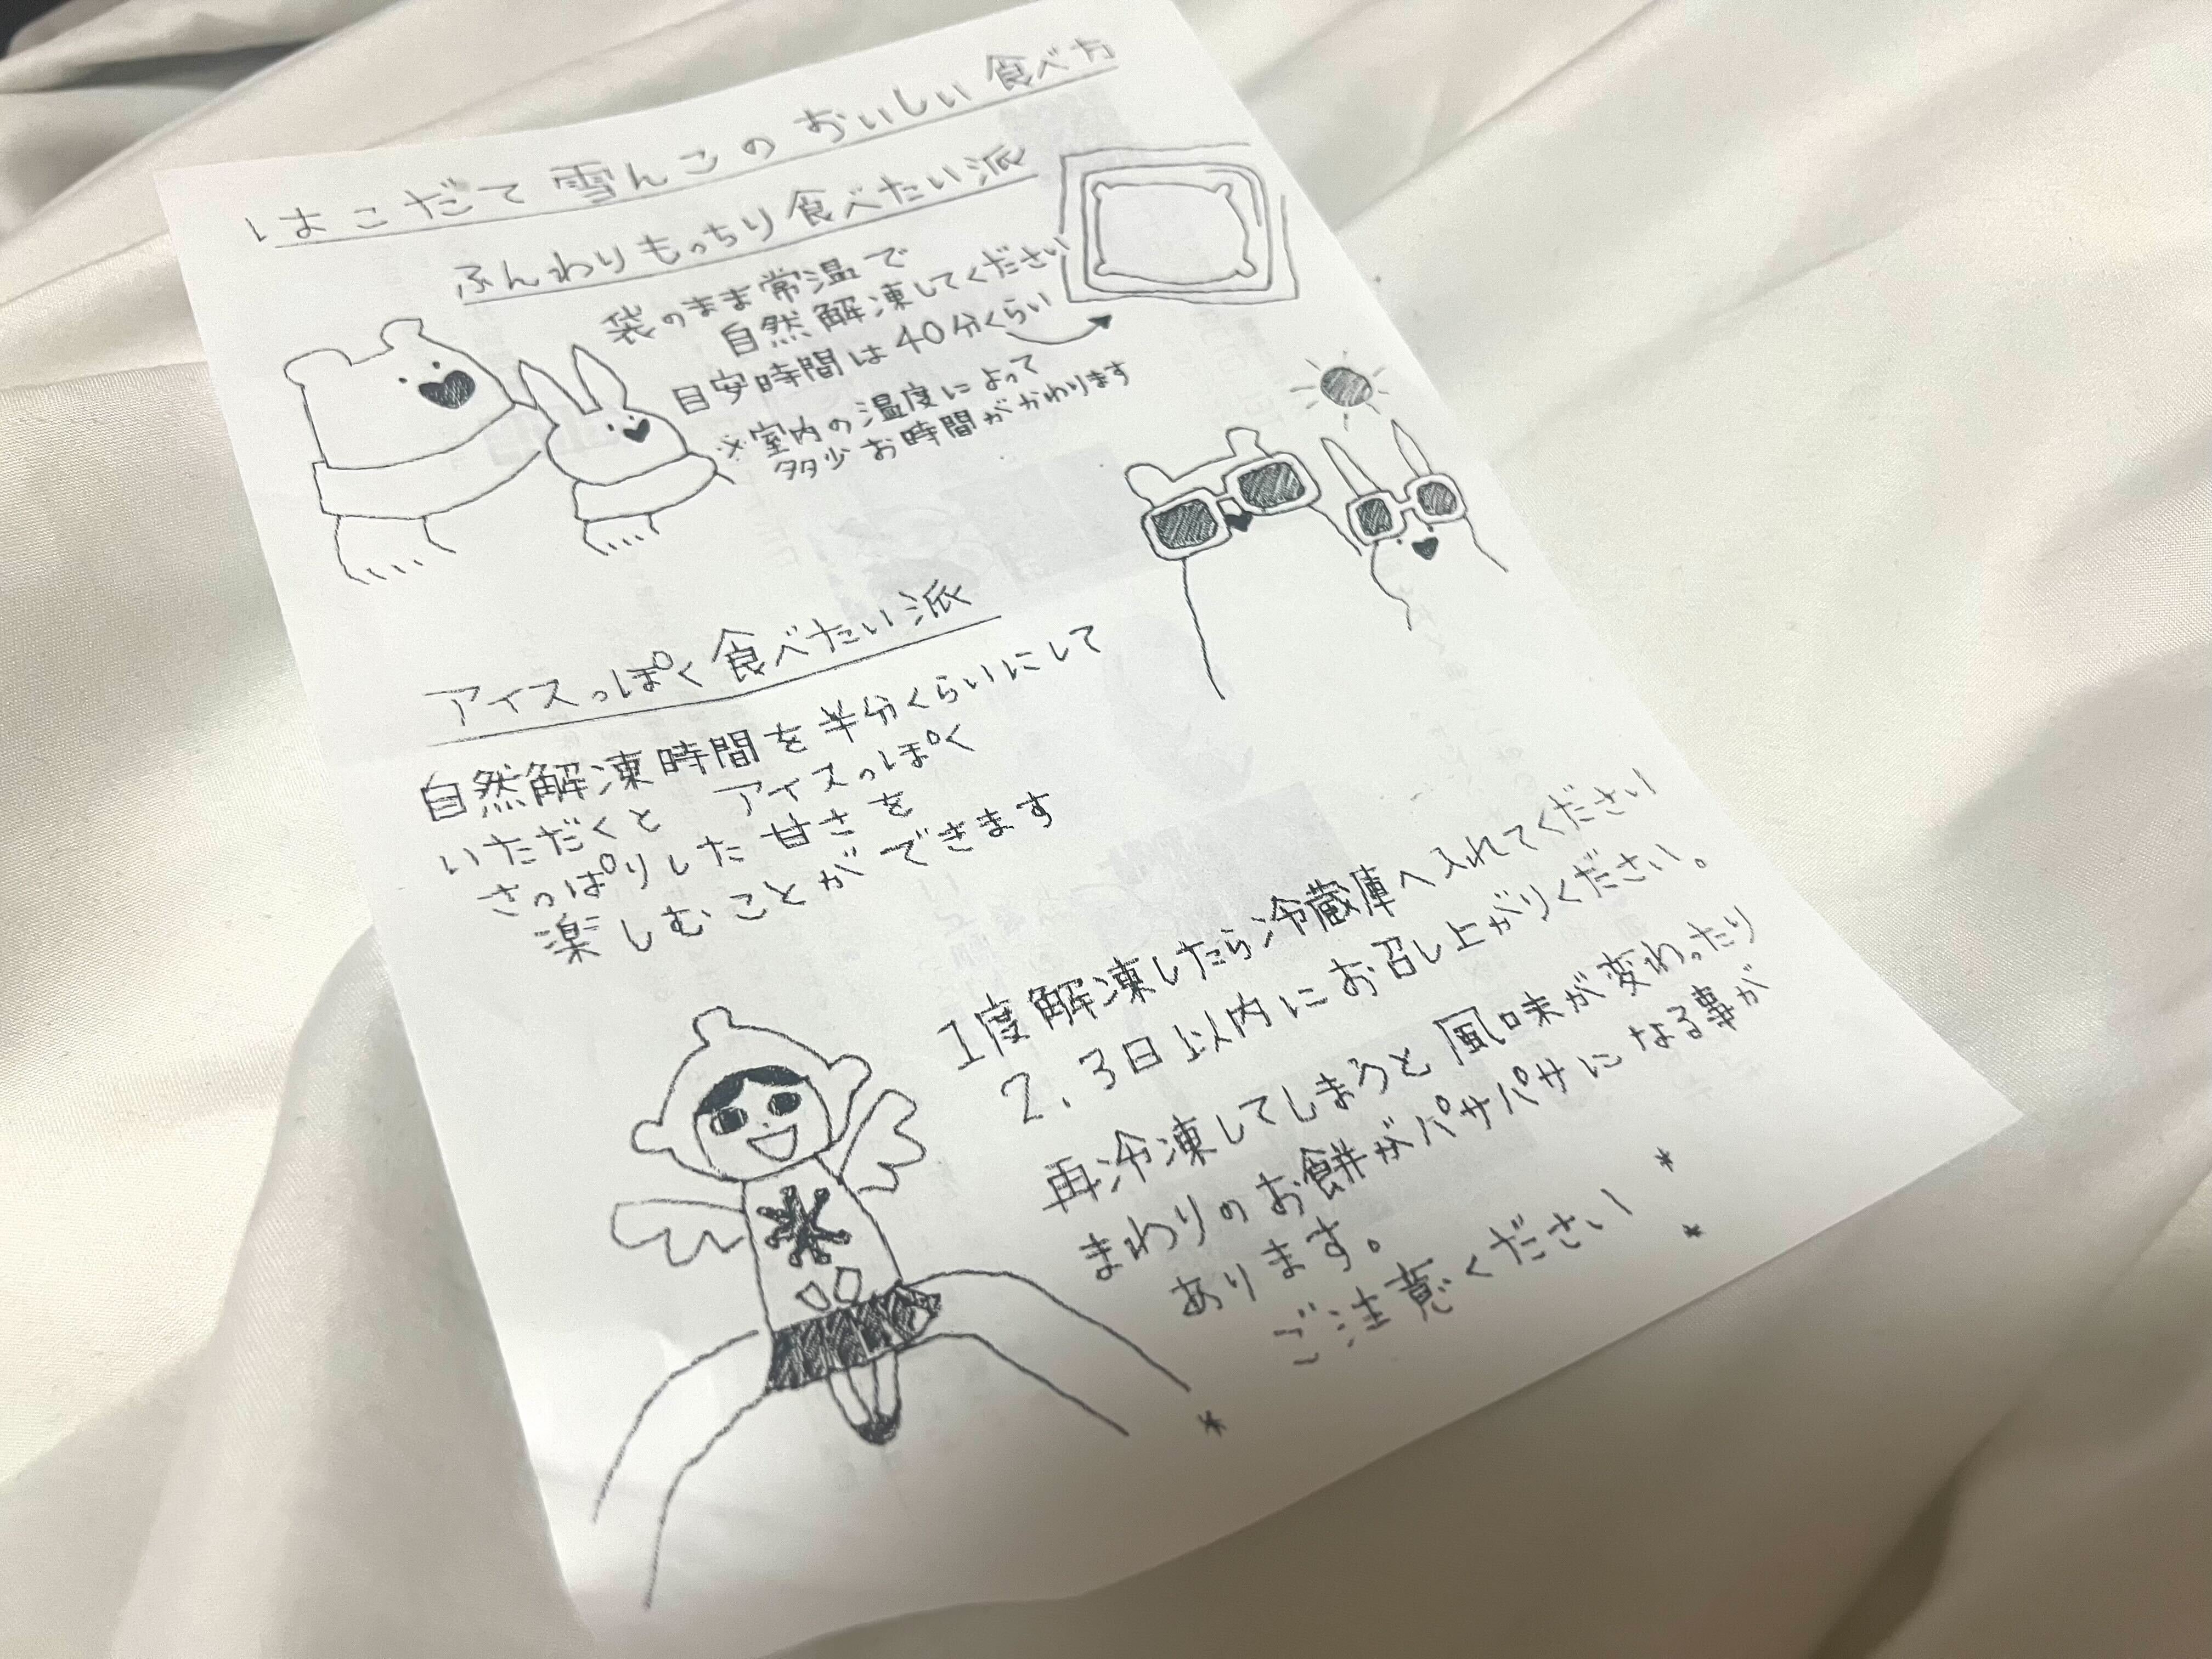 はこだて雪んこのおいしい食べ方
ふんわりもっちり食べたい派
袋のまま常温で
自然解凍してください
目安時間は40分くらい
※室内の温度によって
多少お時間がかわります
アイスっぽく食べたい派
自然解凍時間を半分くらいにして
いただくと アイスっぽく
さっぱりした甘さを
楽しむことができます
1度解凍したら冷蔵庫へ入れてください
2、3日以内にお召し上がりください。
再冷凍してしまうと風味が変わったり
まわりのお餅がパサパサになる事が
あります。
ご注意ください